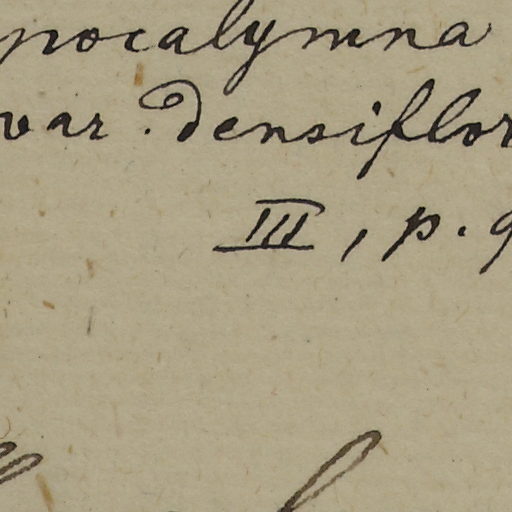 pocalymna
var. densiflor
III, p. 9